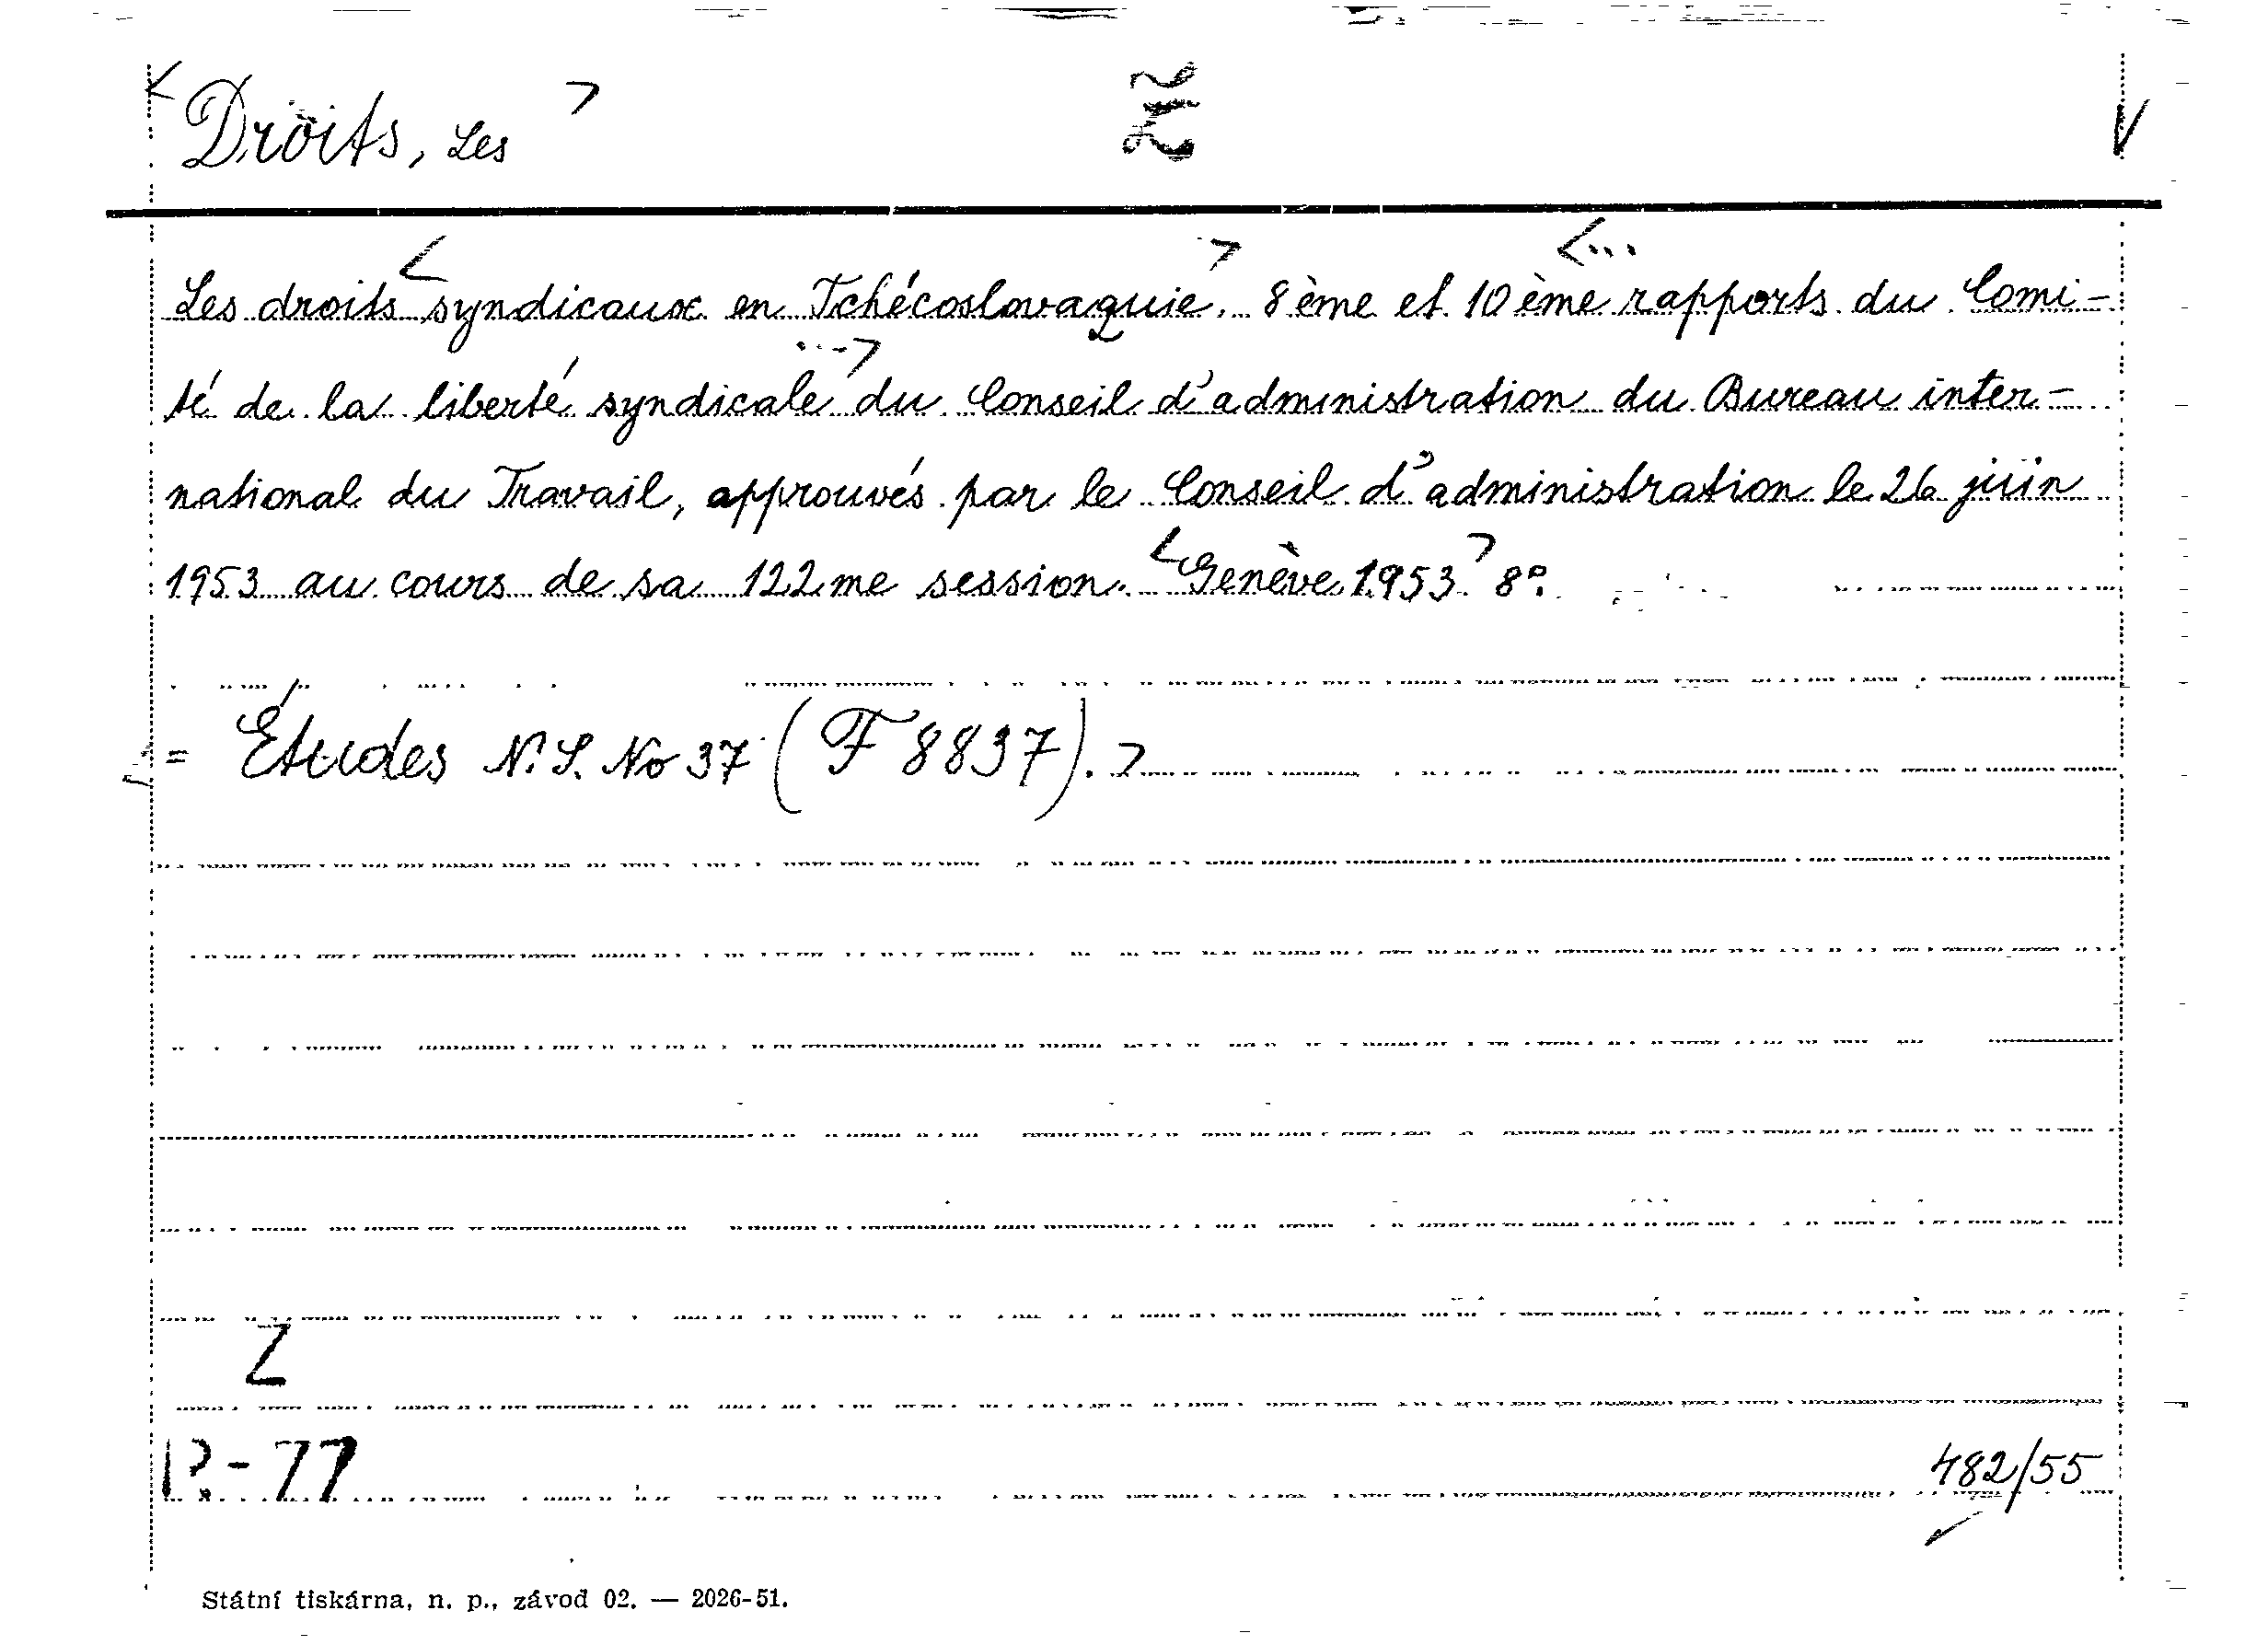 Droits, Les
Les droits syndicaux en Tchécoslovaquie. 8ème et 10ème rapports du Comi-
té de la liberté syndicale du Conseil d'administration du Bureau inter-
national du Travail, approuvés par le Conseil d'administration le 26 juin
1953 au cours de sa 122me session. Genève 1953. 8°.
= Études N.S. No 37 (F 8837).
Z
482/55
Státní tiskárna, n. p., závod 02. — 2026-51.